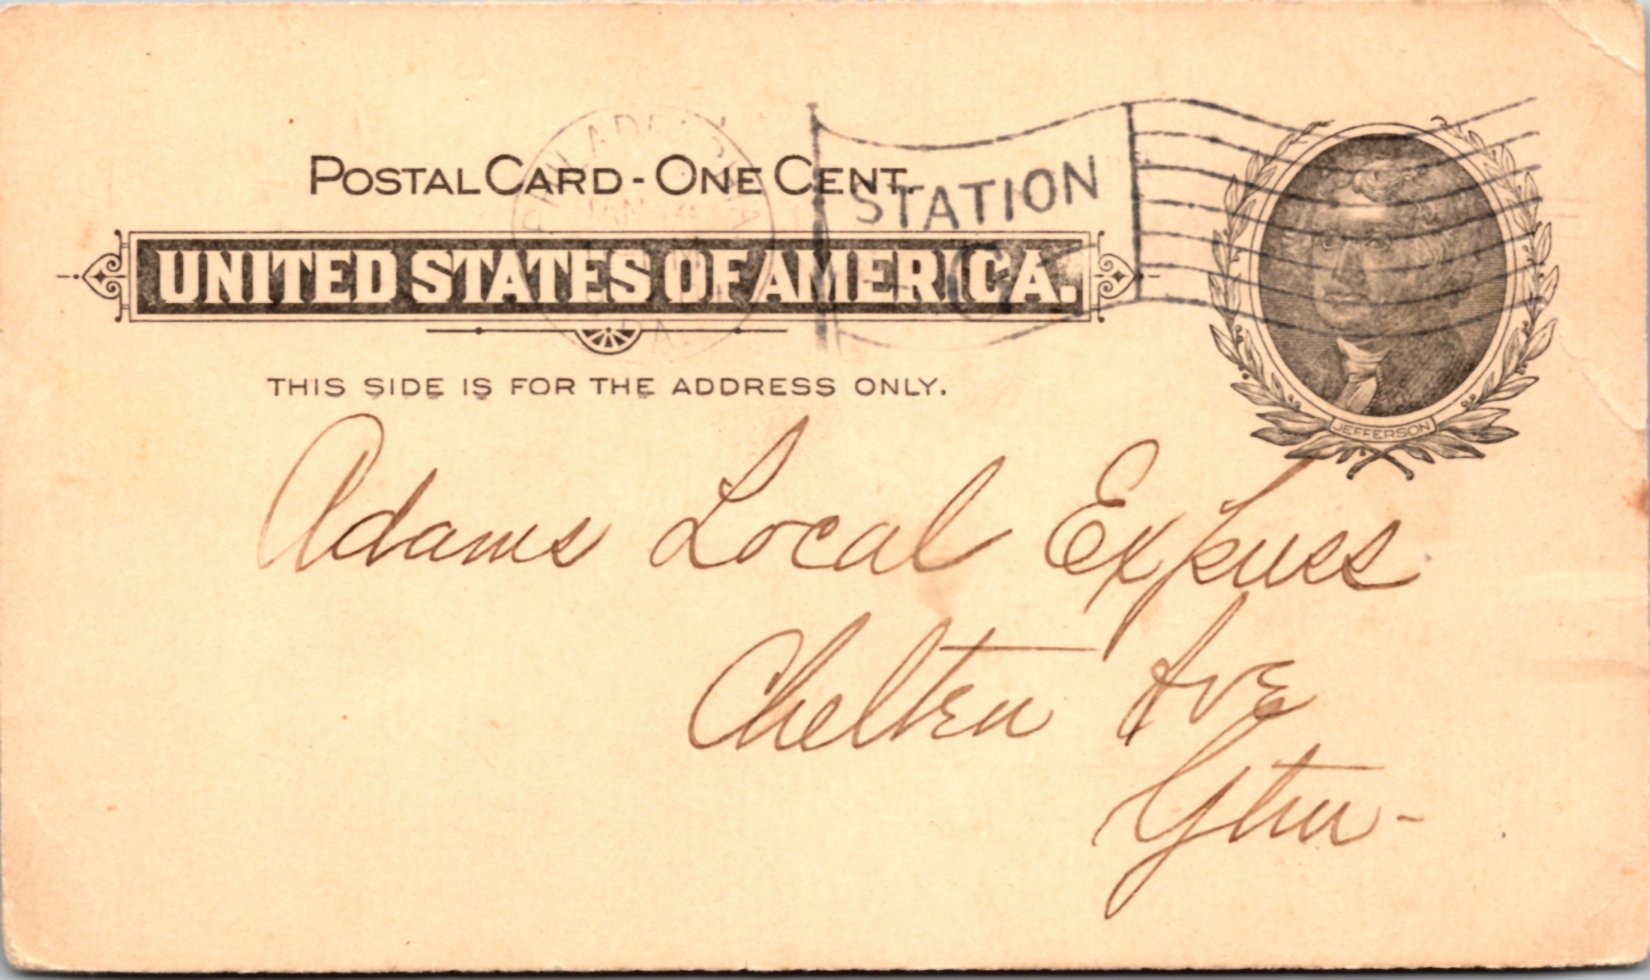 PHILADELPHIA
JAN 14
PA.
STATION
C
POSTAL CARD - ONE CENT.
UNITED STATES OF AMERICA.
THIS SIDE IS FOR THE ADDRESS ONLY.
JEFFERSON
Adams Local Express
Chelten Ave
Gtn -